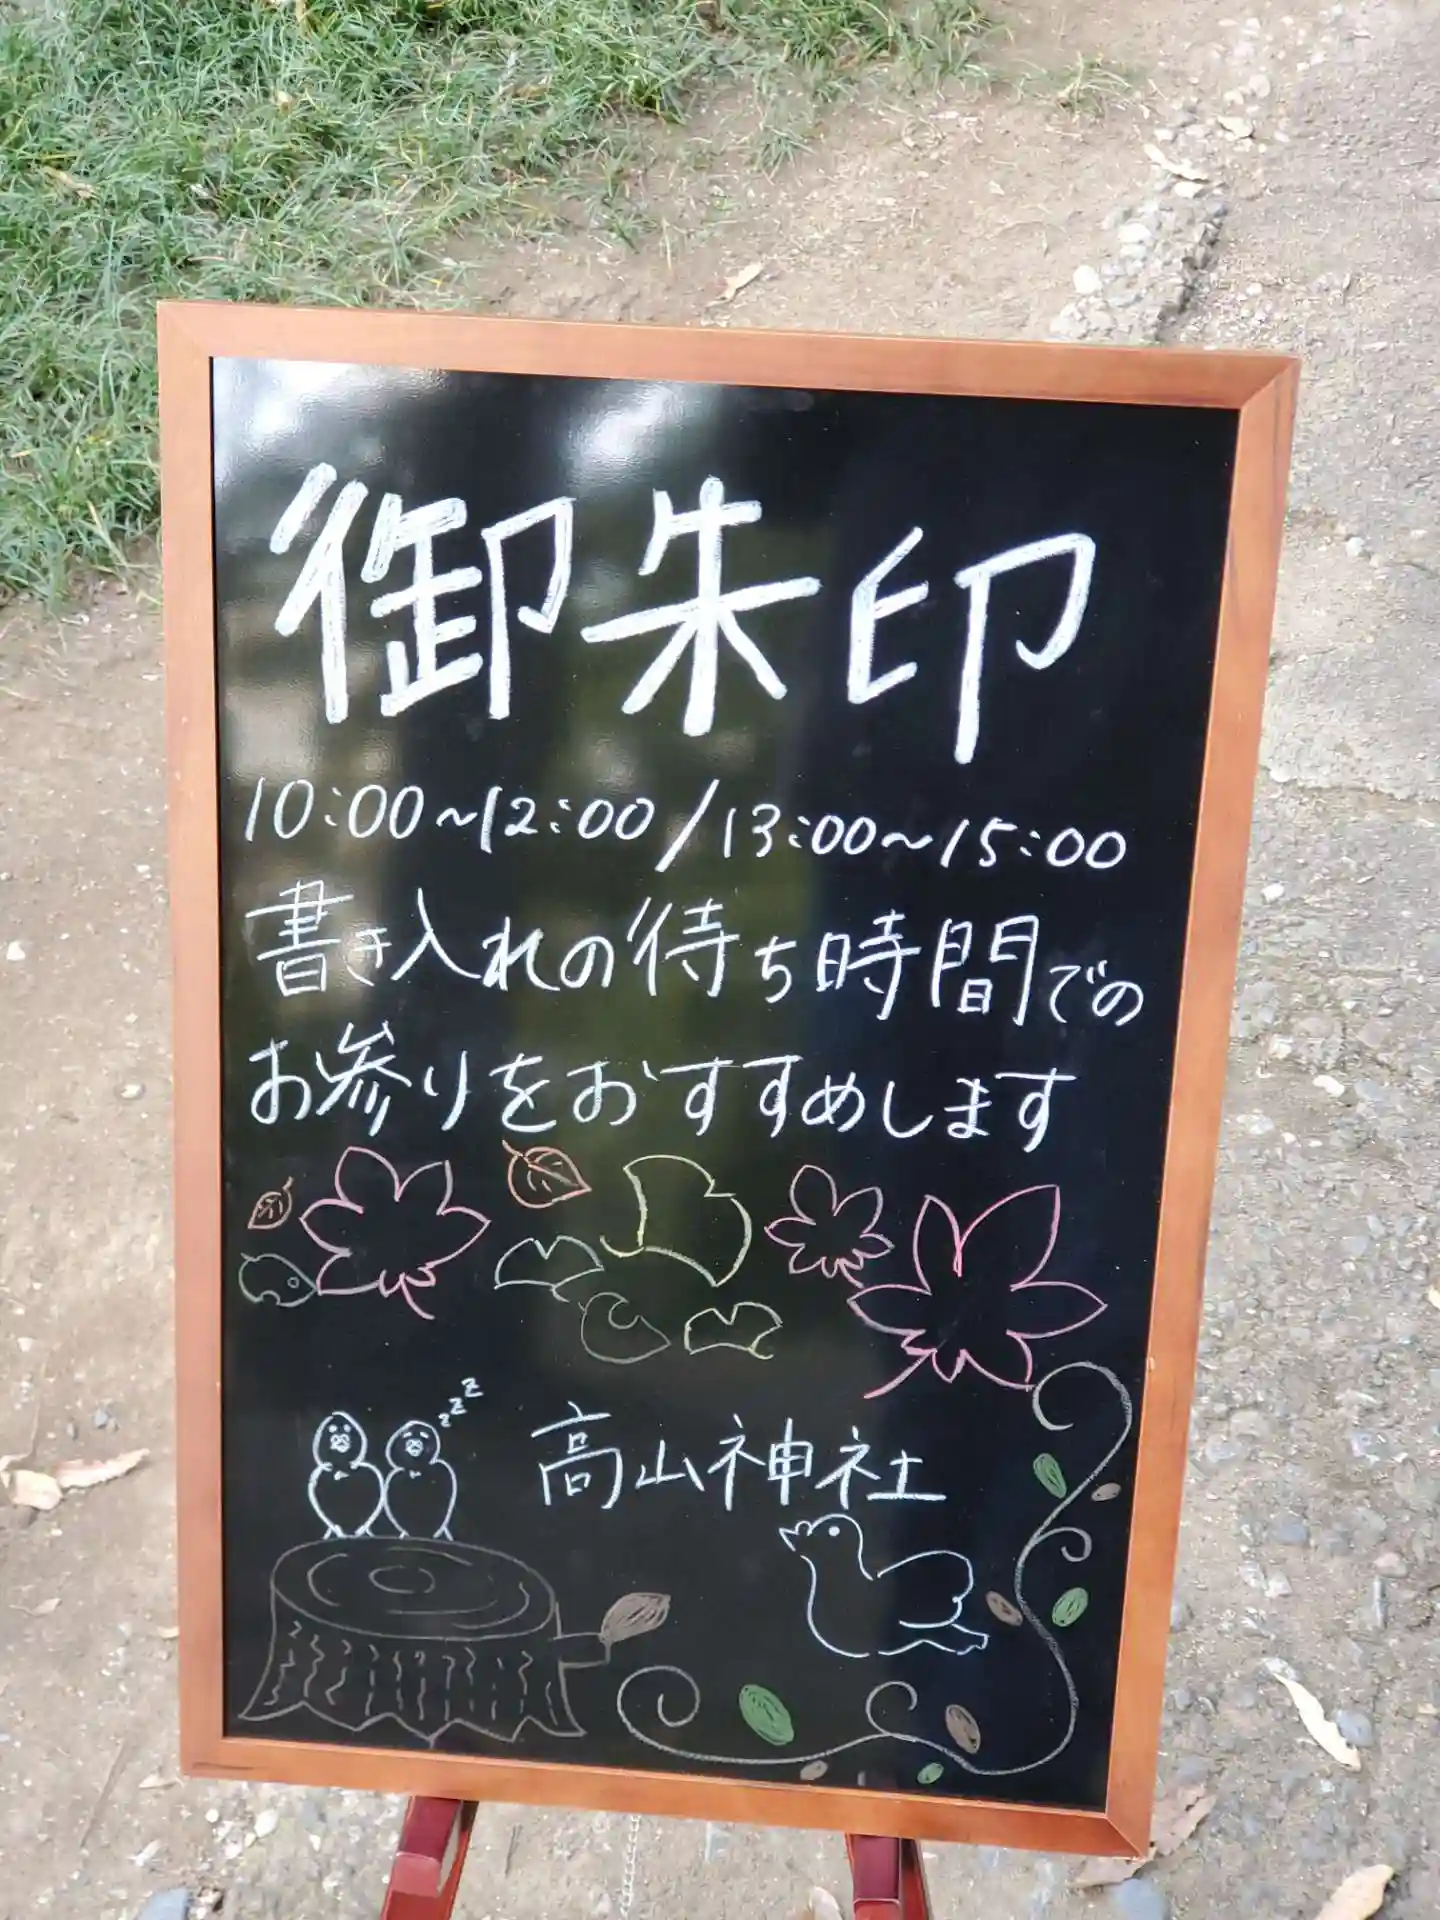 御朱印
10:00～12:00/13:00～15:00
書き入れの待ち時間での
お参りをおすすめします
zzz
高山神社